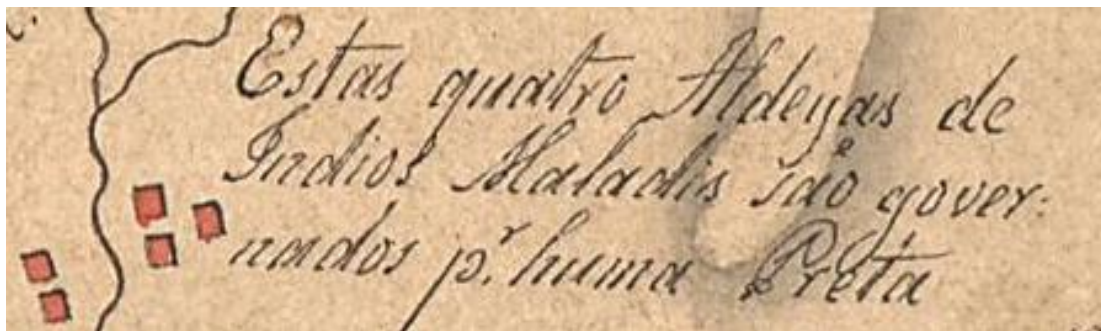 Estas quatro Aldeyas de
Indios Maladis são gover:
nados p.r huma Preta